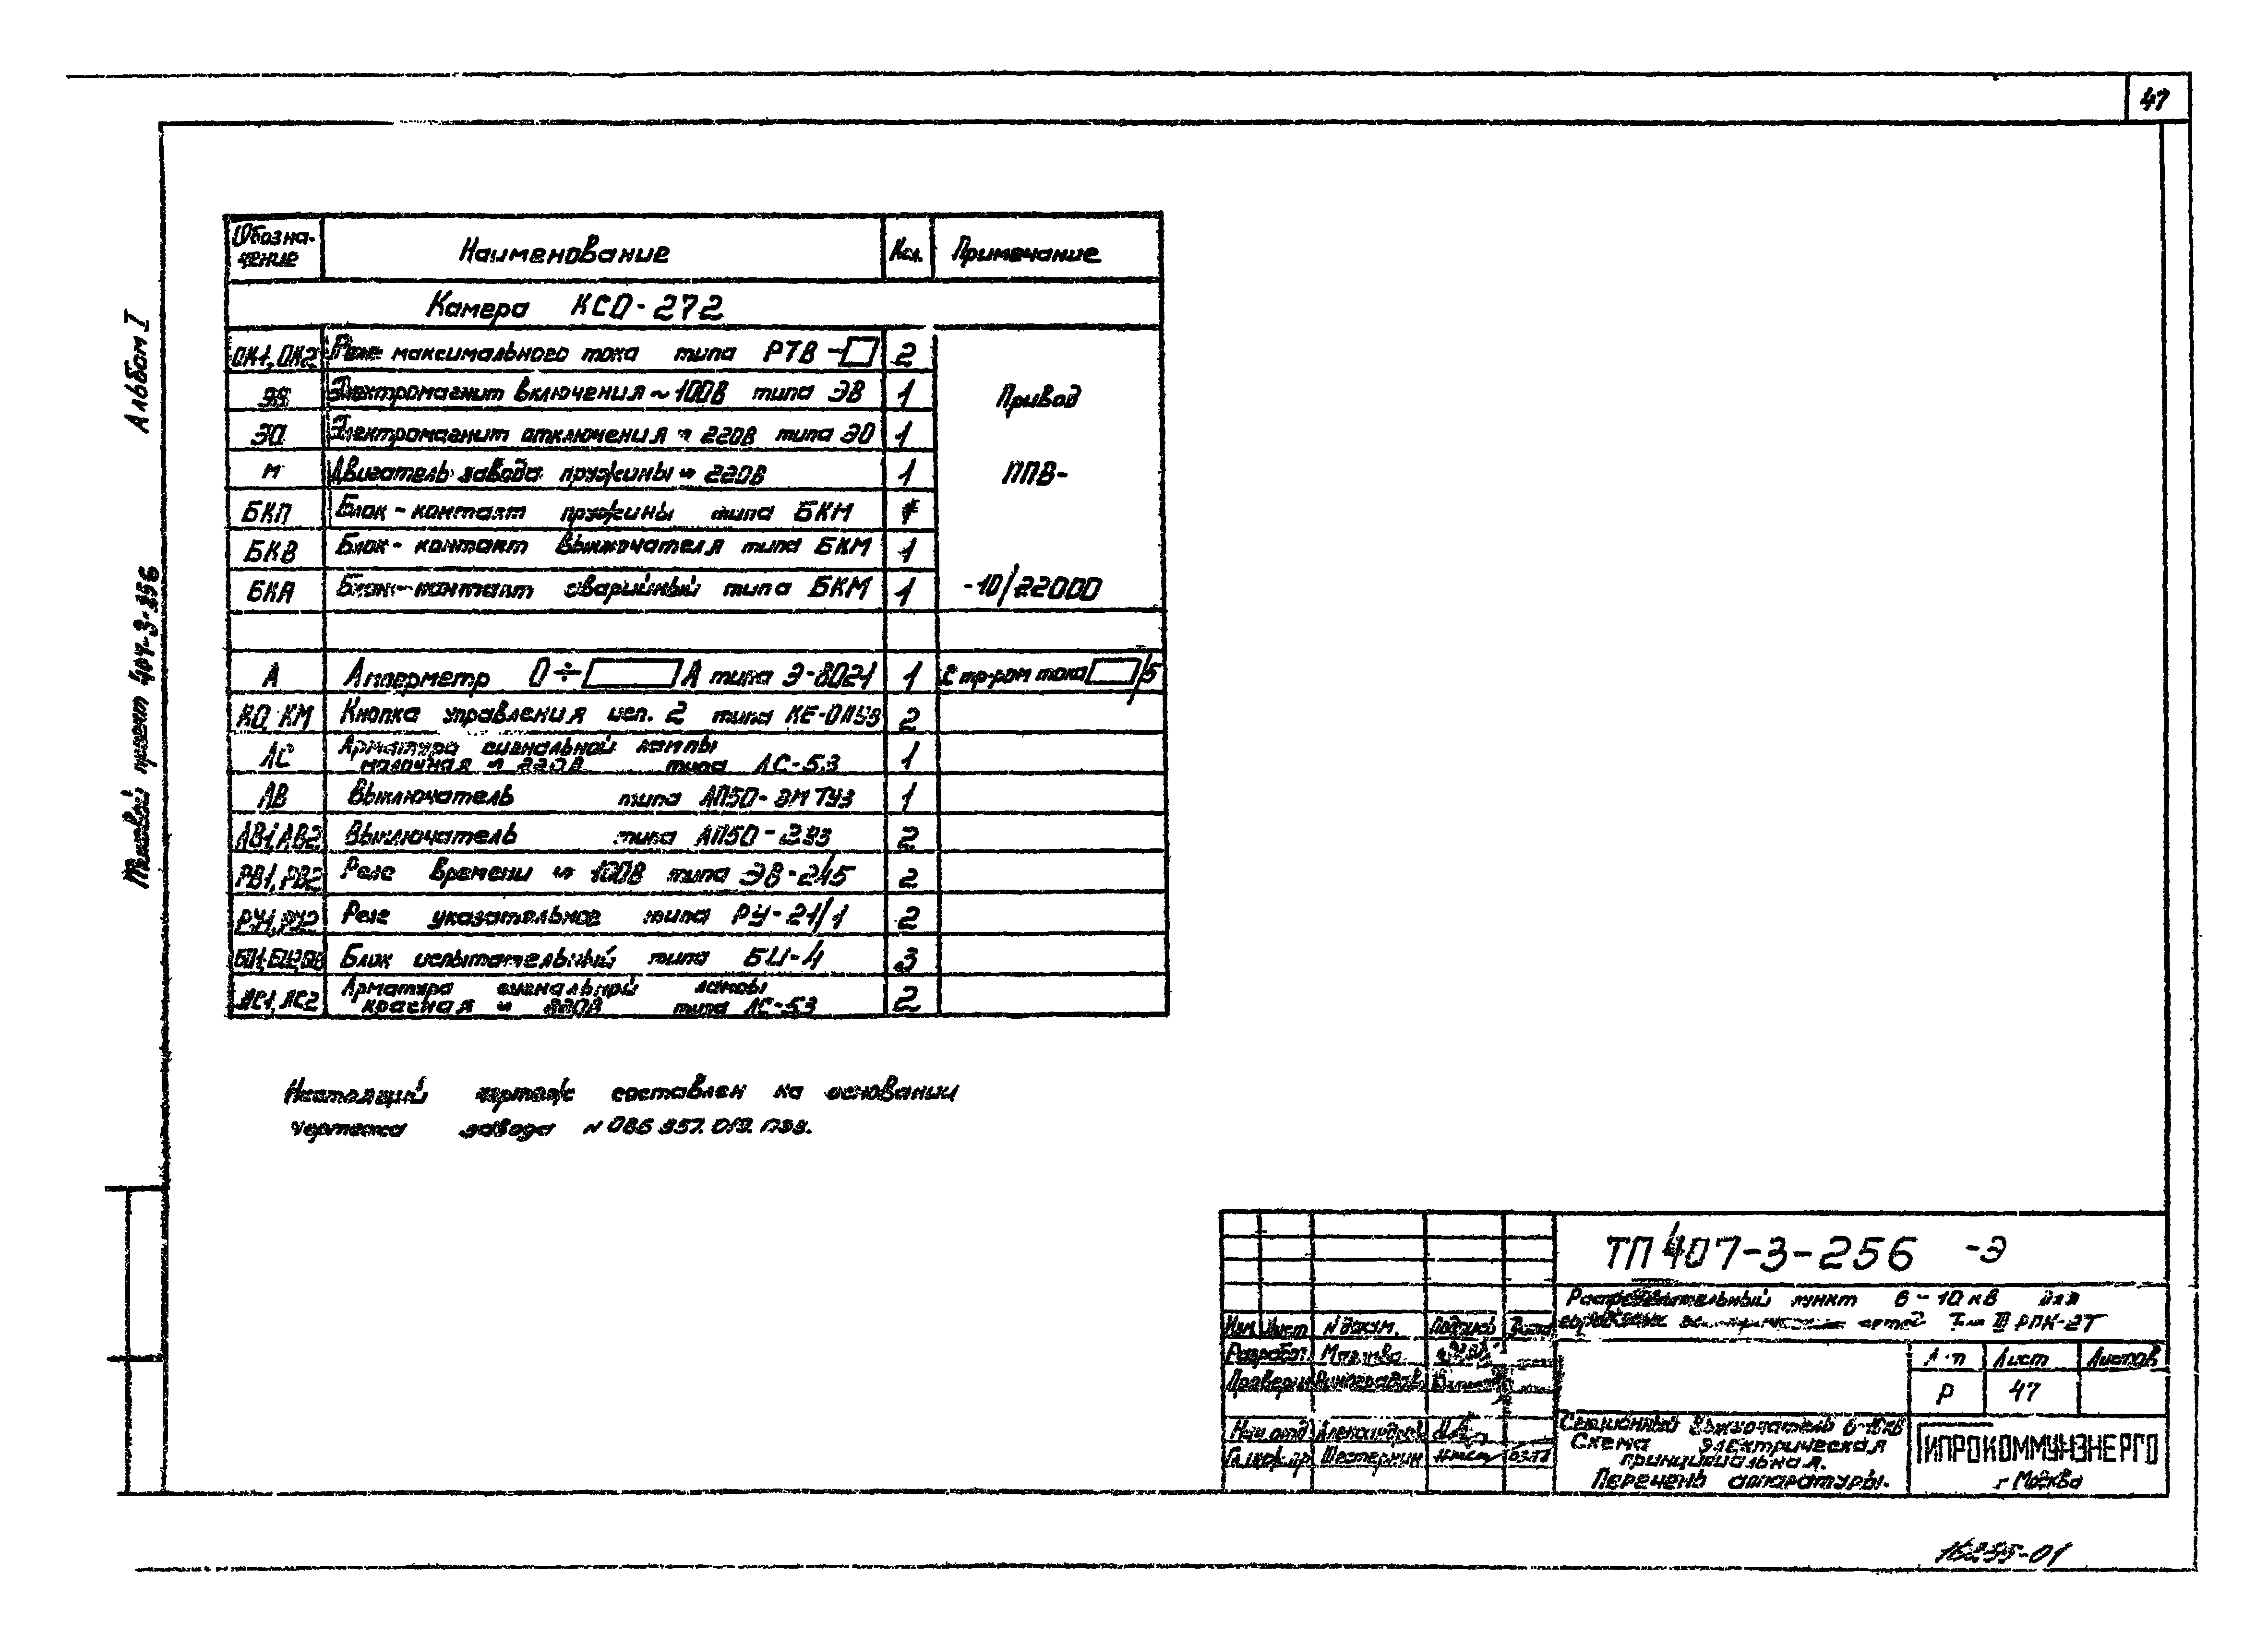 47
Альбом I
Типовой проект 407-3-256
Обозна-
чение
Наименование
Кол.
Примечание
Камера КСО-272
ОК1, ОК2 Реле максимального тока типа РТВ- 2
Электромагнит включения ~ 100В типа ЭВ 1
Привод
ЭО Электромагнит отключения ~ 220В типа ЭО 1
М Двигатель завода пружины ~ 220В 1
ППВ-
БКП Блок-контакт пружины типа БКМ
БКВ Блок-контакт выключателя типа БКМ 1
БКА Блок-контакт аварийный типа БКМ 1
-10/22000
А Амперметр 0÷ А типа Э-8021 1 С тр-ром тока /5
КО, КМ Кнопка управления исп. 2 типа КЕ-011У3 2
ЛС Арматура сигнальной лампы
молочная ~ 220В типа ЛС-53 1
АВ Выключатель типа АП50-2МТУ3 1
АВ1, АВ2 Выключатель типа АП50- 2
РВ1, РВ2 Реле времени ~ 100В типа ЭВ-245 2
РУ1, РУ2 Реле указательное типа РУ-21/1 2
Блок испытательный типа БИ-4 3
ЛС1, ЛС2 Арматура сигнальной лампы
красная ~ 220В типа ЛС-53 2
Настоящий чертеж составлен на основании
чертежа завода N
ТП 407-3-256 -Э
Распределительный пункт 6-10 кв для
городских электрических сетей Тип III РПК-2Т
Изм Лист N докум. Подпись Дата
Разработ.
Проверил Виноградов
Нач. отд Александров
Гл. инж. пр Шестеркин
Лит Лист Листов
Р 47
Секционный выключатель 6-10кв
Схема электрическая
принципиальная.
Перечень аппаратуры.
ГИПРОКОММУНЭНЕРГО
г Москва
16255-01